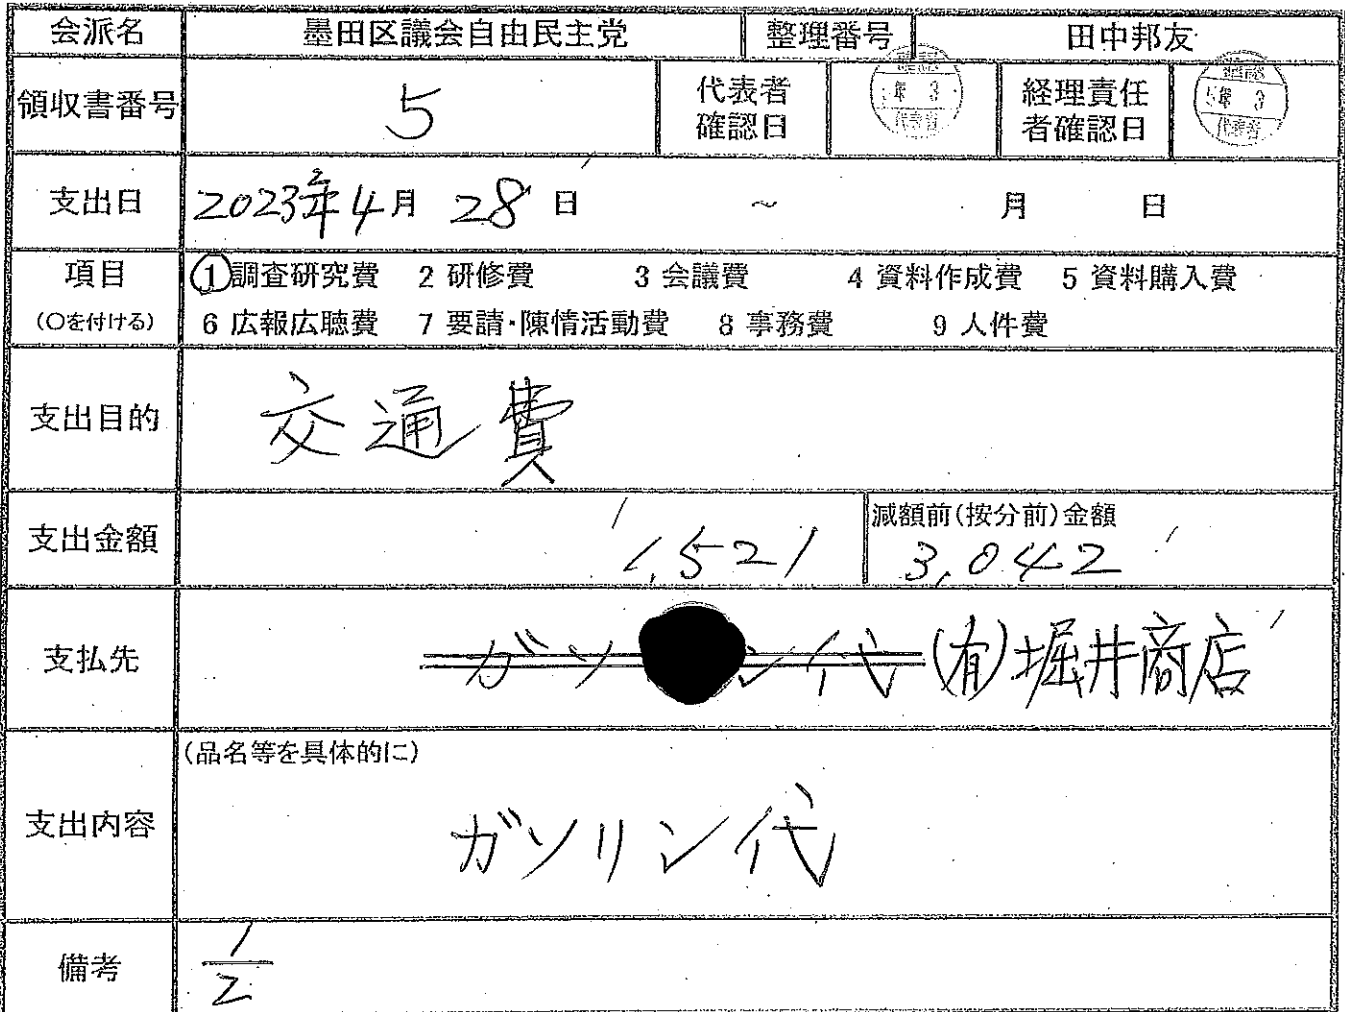 会派名 墨田区議会自由民主党 整理番号 田中邦友
領収書番号 5 代表者確認日 年 3 代表者 経理責任者確認日 確認 5年 3 代表者
支出日 2023年4月 28日 ～ 月 日
項目 1 調査研究費 2 研修費 3 会議費 4 資料作成費 5 資料購入費
(○を付ける) 6 広報広聴費 7 要請・陳情活動費 8 事務費 9 人件費
支出目的 交通費
支出金額 1,521 減額前(按分前)金額 3,042
支払先 ガソ ン代 (有)堀井商店
(品名等を具体的に)
支出内容 ガソリン代
備考 1/2